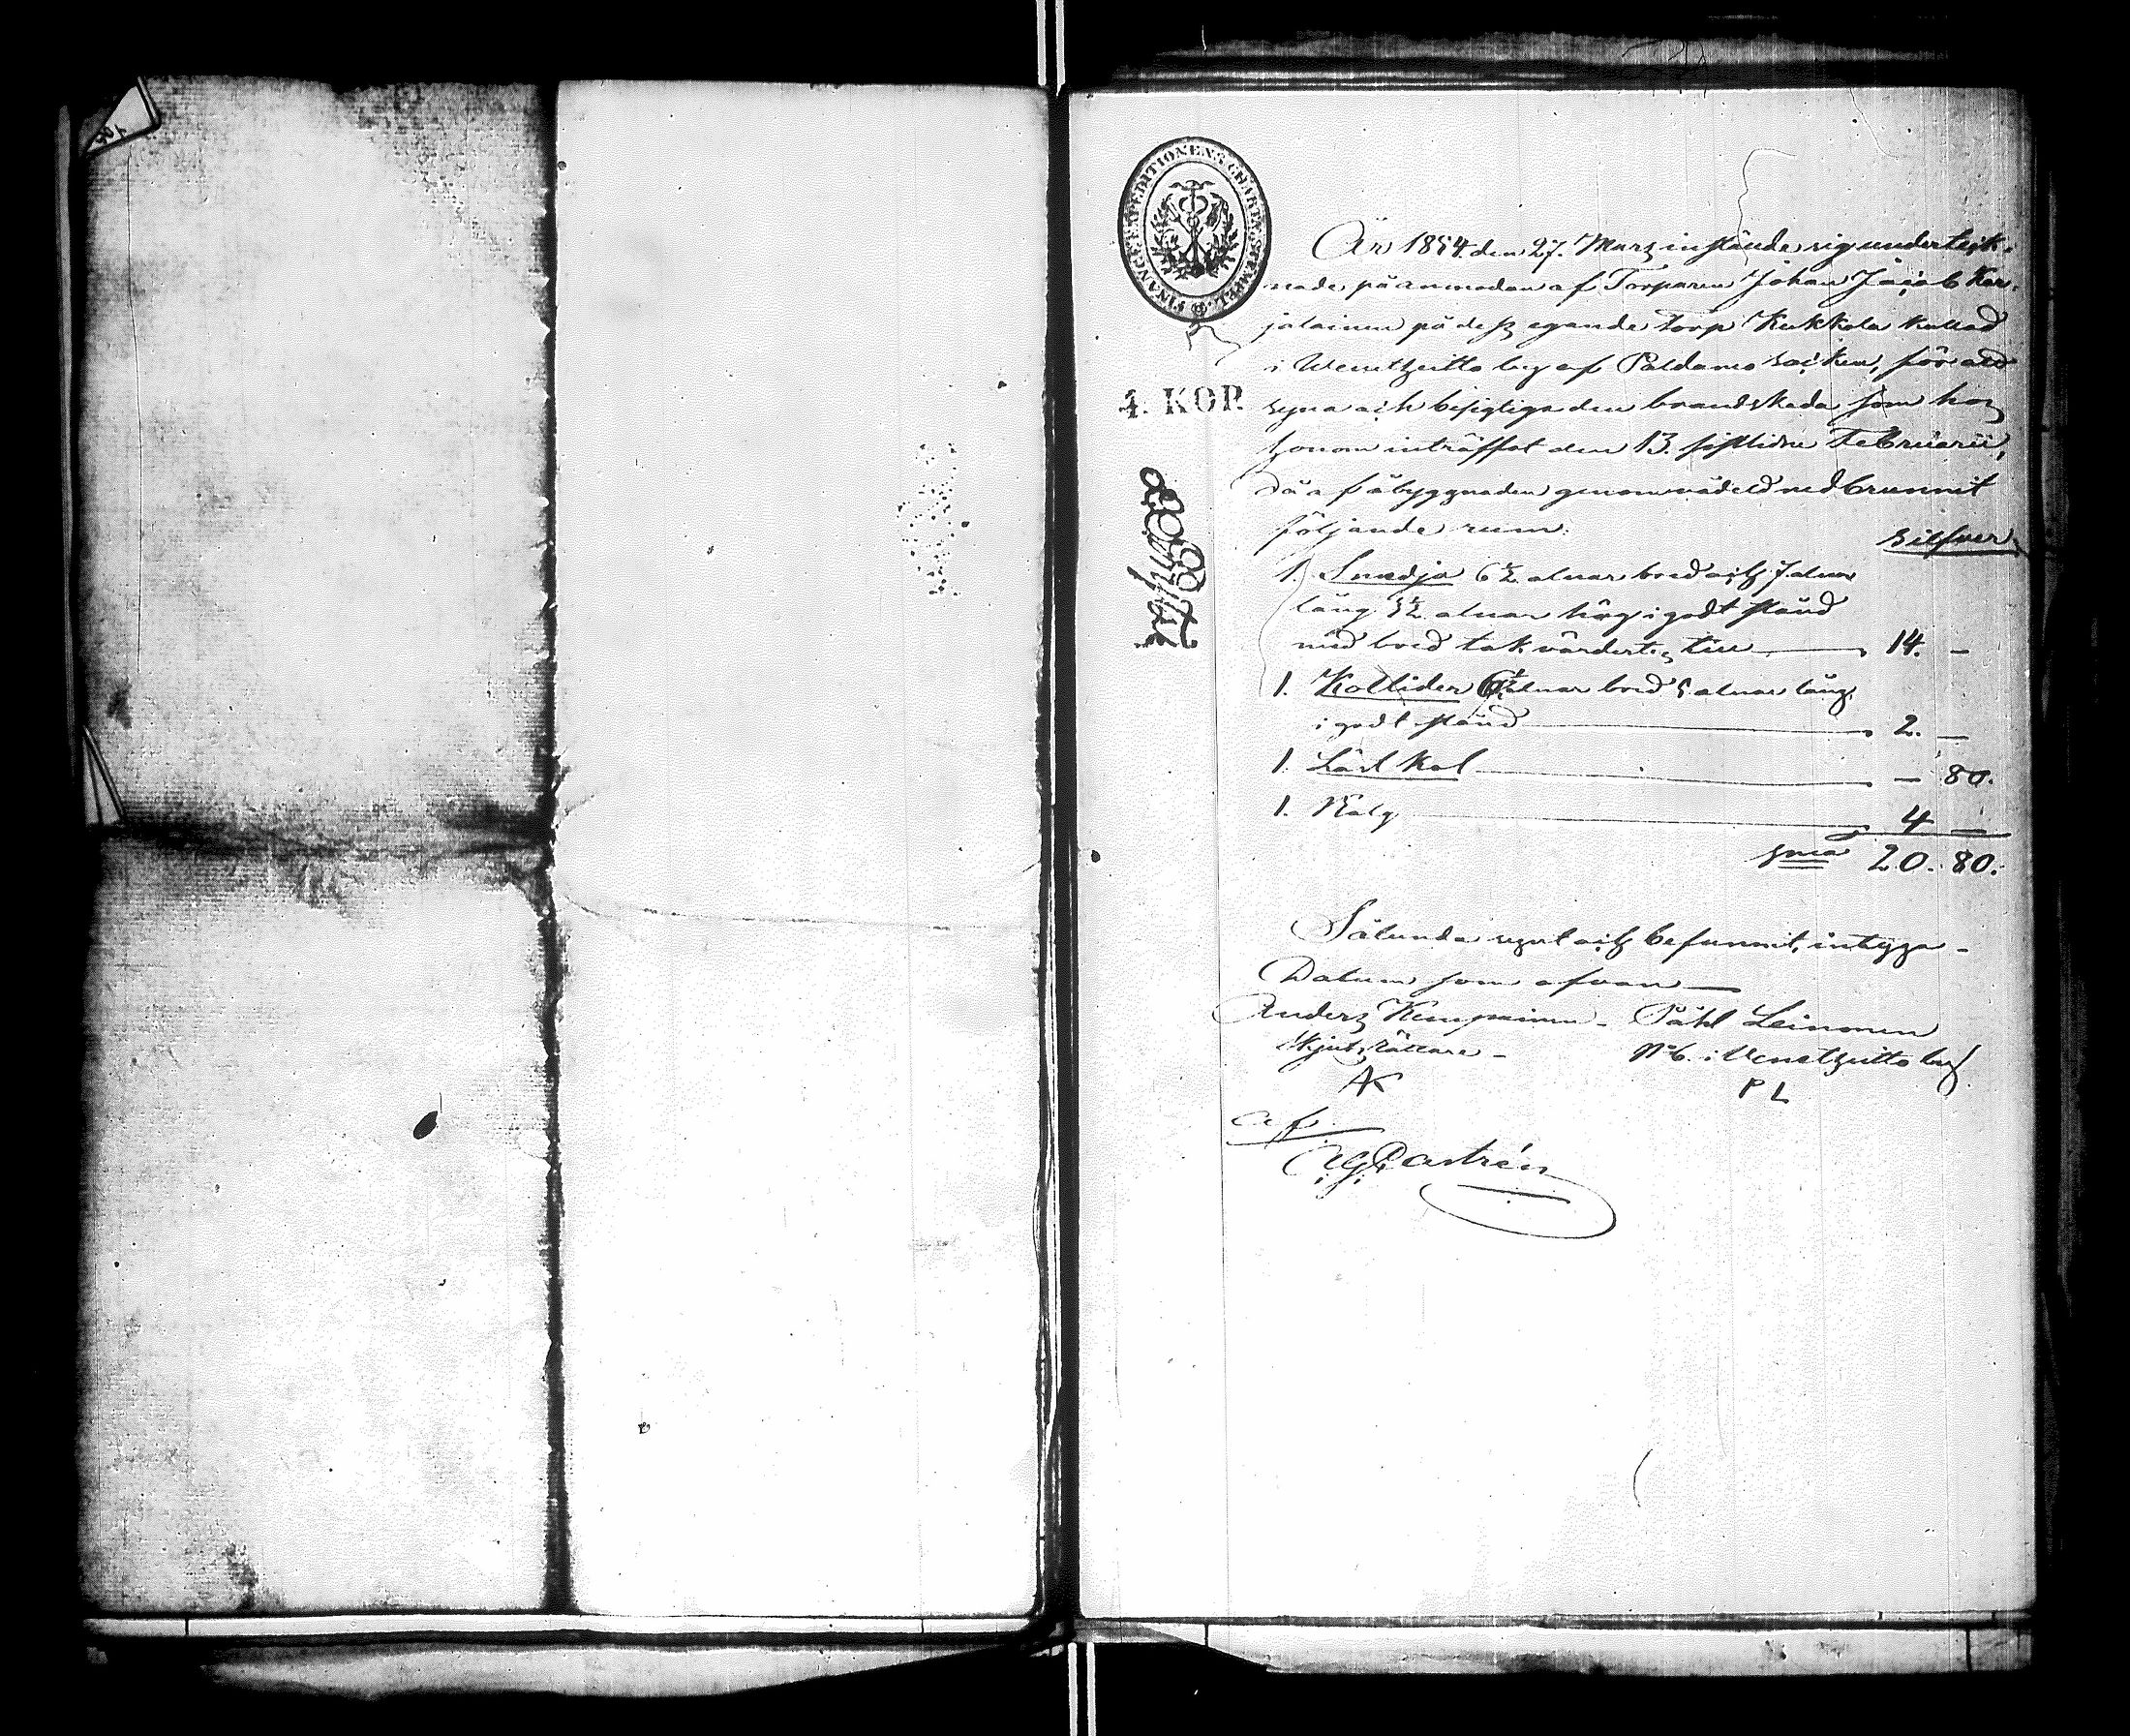 FINANCE-EXPEDITIONENS CHARTÆ-STEMPEL
År 1854. den 27. Mars instände sig underteck-
nade på anmodan af Torparen Johan Jacob Kar-
jalainen på dess egande torp Kukkola kallad
i Wenetheitto by af Paldamo socken, för att
4. KOP.
syna och besigtiga den brandskada som hos
honom inträffat den 13. sistlidne Februarii,
då af åbyggnaden genom vådeld nedbrunnit
följande rum.
Silfver
1. Smedja 6½ alnar bred och 7. alnar
lång 3½ alnar hög i godt stånd
med bred tak värdertes till 14. —
1. Kollider 6½ alnar bred 5 alnar lång,
i godt stånd 2. —
1. Läst Kol — 80.
1. Bälg 4 —
Sma 20. 80.
Sålunda synt och befunnit, intyga -
Datum som ofvan
Anders Kemppainen - Påhl Leinonen
Skjutsrättare - No 6. i Venetheitto by
AK P L
af.
Castrén